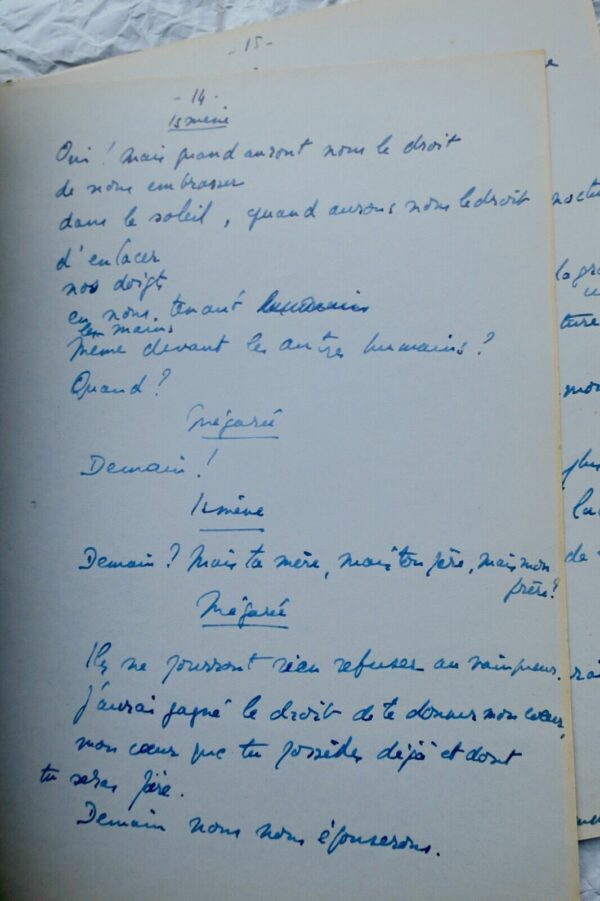 - 15 -
- 14 -
Ismène
Oui ! mais quand auront nous le droit
de nous embrasser
dans le soleil, quand aurons nous le droit
d'enlacer
nos doigts
en nous tenant
les mains
même devant les autres humains ?
Quand ?
Mégarée
Demain !
Ismène
Demain ? Mais ta mère, mais ton père, mais mon
frère ?
Mégarée
Ils ne pourront rien refuser au vainqueur.
j'aurai gagné le droit de te donner mon cœur,
mon cœur que tu possèdes déjà et dont
tu seras fière.
Demain nous nous épouserons.